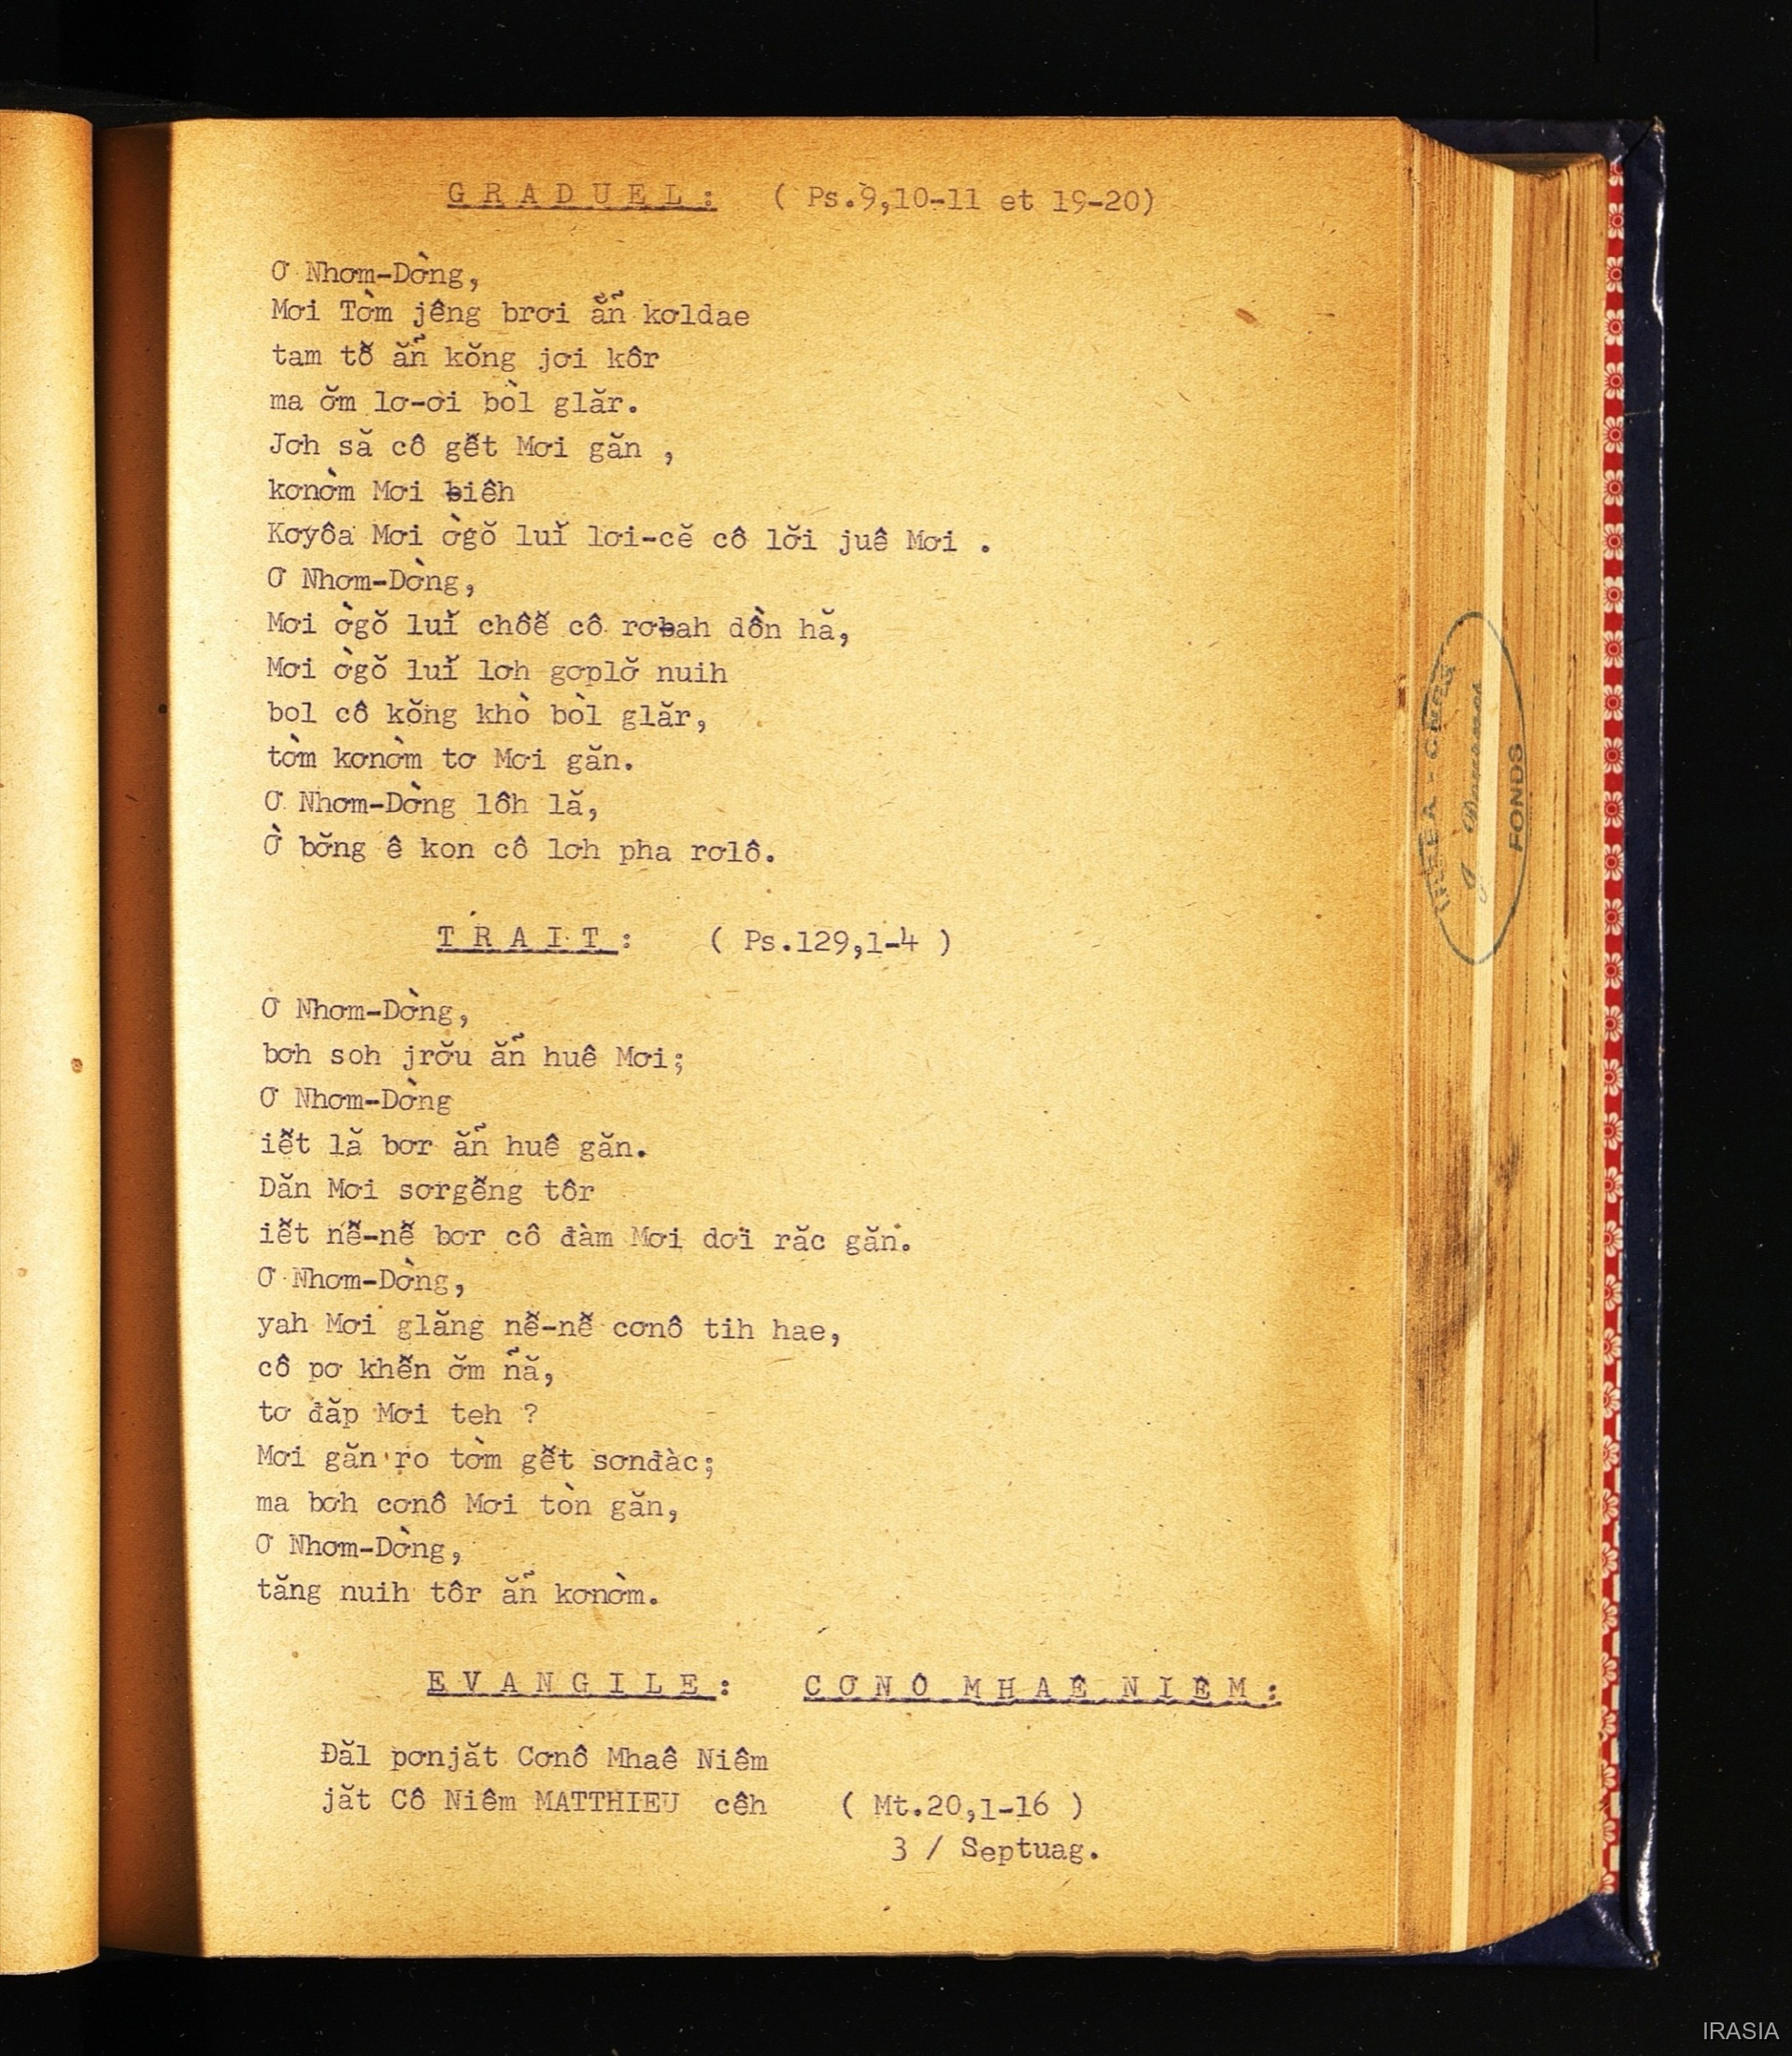 GRADUEL: ( Ps.9,10-11 et 19-20)
Ơ Nhơm-Dờng,
Mơi Tờm jêng brơi ẳñ kơldae
tam tơ̆ ăñ kŏng jơi kôr
ma ơ̆m lơ-ơi bòl glăr.
Jơh să cô gê̆t Mơi găn ,
kơnờm Mơi ƀiêh
Kơyôa Mơi ờgŏ luĭ lơi-cĕ cô lơ̆i juê Mơi .
Ơ Nhơm-Dờng,
Mơi ờgŏ luĭ chôê̆ cô rơƀah dồn hă,
Mơi ờgŏ luĭ lơh gơplơ̆ nuih
bol cô kŏng khò bòl glăr,
tờm kơnờm tơ Mơi găn.
Ơ Nhơm-Dờng lôh lă,
Ờ bơ̆ng ê kon cô lơh pha rơlô.
TRAIT: ( Ps.129,1-4 )
Ơ Nhơm-Dờng,
bơh soh jrơ̆u ăñ huê Mơi;
Ơ Nhơm-Dờng
iê̆t lă bơr ăñ huê găn.
Dăn Mơi sơrgê̆ng tôr
iê̆t nê̆-nê̆ bơr cô đàm Mơi dơi răc găn.
Ơ Nhơm-Dờng,
yah Mơi glăng nê̆-nê̆ cơnô tih hae,
cô pơ khê̆n ơ̆m ñă,
tơ đăp Mơi teh ?
Mơi găn ro tờm gê̆t sơnđàc;
ma bơh cơnô Mơi tòn găn,
Ơ Nhơm-Dờng,
tăng nuih tôr ăñ kơnờm.
EVANGILE: CƠNÔ MHAÊ NIÊM:
Đăl pơnjăt Cơnô Mhaê Niêm
jăt Cô Niêm MATTHIEU cêh ( Mt.20,1-16 )
3 / Septuag.
FONDS
IRASIA